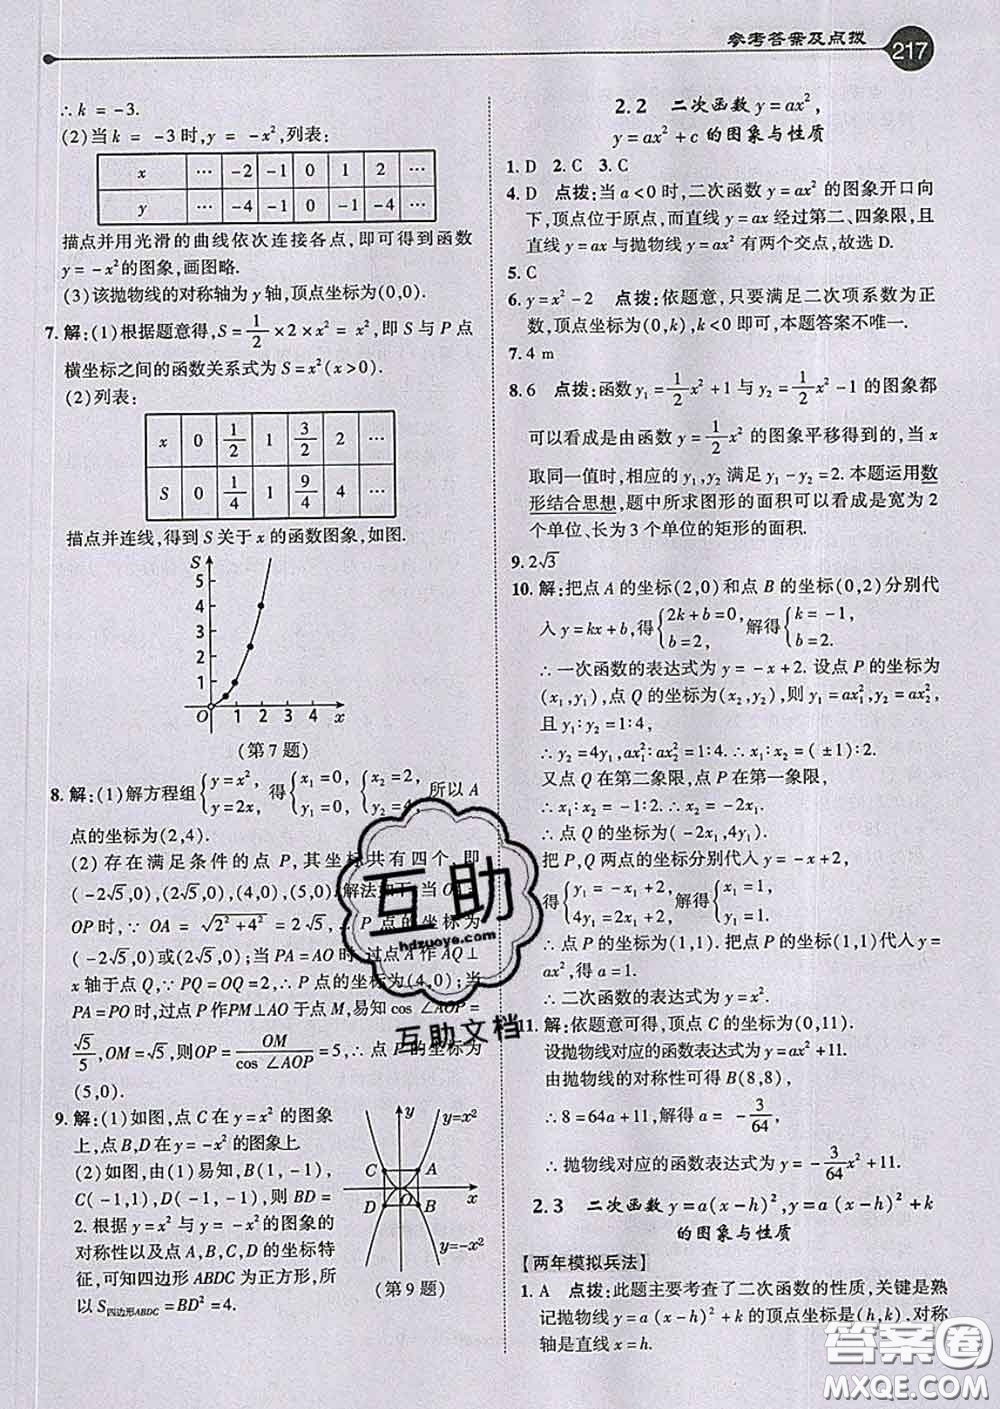 参考答案及点拨 217
∴ k = -3.
(2)当 k = -3 时, y = -x², 列表:
x … -2 -1 0 1 2 …
y … -4 -1 0 -1 -4 …
描点并用光滑的曲线依次连接各点, 即可得到函数
y = -x²的图象, 画图略.
(3)该抛物线的对称轴为 y 轴, 顶点坐标为(0,0).
7. 解:(1)根据题意得, S = 1/2 × 2 × x² = x², 即 S 与 P 点
横坐标之间的函数关系式为 S = x²(x>0).
(2)列表:
x 0 1/2 1 3/2 2 …
S 0 1/4 1 9/4 4 …
描点并连线, 得到 S 关于 x 的函数图象, 如图.
S
5
4
3
2
1
O 1 2 3 4 x
(第 7 题)
8. 解:(1)解方程组{y=x², y=2x, 得{x₁=0, y₁=0, {x₂=2, y₂=4, 所以 A
点的坐标为(2,4).
(2)存在满足条件的点 P, 其坐标共有四个, 即
(-2√5,0),(2√5,0),(4,0),(5,0).解法如下:当 OA =
OP 时, ∵ OA = √(2²+4²) = 2√5, ∴ P 点的坐标为
(-2√5,0)或(2√5,0);当 PA = AO 时, 过点 A 作 AQ⊥
x 轴于点 Q, ∵ PQ = OQ = 2, ∴ P 点的坐标为(4,0);当
PA = PO 时, 过点 P 作 PM⊥AO 于点 M, 易知 cos ∠AOP =
√5/5, OM = √5, 则 OP = OM/cos ∠AOP = 5, ∴ 点 P 的坐标为
(5,0).
9. 解:(1)如图, 点 C 在 y = x² 的图象
上, 点 B,D 在 y = -x² 的图象上.
(2)如图, 由(1)易知, B(1, -1),
C(-1,1), D(-1, -1), 则 BD =
2. 根据 y = x² 与 y = -x² 的图象的
对称性以及点 A,B,C,D 的坐标特
征, 可知四边形 ABDC 为正方形, 所
以 S四边形ABDC = BD² = 4.
y y=x²
C A
D O B x
y=-x²
(第 9 题)
2.2 二次函数 y = ax²,
y = ax² + c 的图象与性质
1. D 2. C 3. C
4. D 点拨:当 a<0 时, 二次函数 y = ax² 的图象开口向
下, 顶点位于原点, 而直线 y = ax 经过第二、四象限, 且
直线 y = ax 与抛物线 y = ax² 有两个交点, 故选 D.
5. C
6. y = x² - 2 点拨:依题意, 只要满足二次项系数为正
数, 顶点坐标为(0,k), k<0 即可, 本题答案不唯一.
7. 4 m
8. 6 点拨:函数 y₁ = 1/2 x² + 1 与 y₂ = 1/2 x² - 1 的图象都
可以看成是由函数 y = 1/2 x² 的图象平移得到的, 当 x
取同一值时, 相应的 y₁, y₂ 满足 y₁ - y₂ = 2. 本题运用数
形结合思想, 题中所求图形的面积可以看成是宽为 2
个单位、长为 3 个单位的矩形的面积.
9. 2√3
10. 解:把点 A 的坐标(2,0)和点 B 的坐标(0,2)分别代
入 y = kx + b, 得{2k+b=0, b=2, 解得{k=-1, b=2.
∴ 一次函数的表达式为 y = -x + 2. 设点 P 的坐标为
(x₁,y₁), 点 Q 的坐标为(x₂,y₂), 则 y₁ = ax₁², y₂ = ax₂²,
且 y₁∶y₂ = 1∶4,
∴ y₂ = 4y₁, ax₁²∶ax₂² = 1∶4. ∴ x₁∶x₂ = (±1)∶2.
又点 Q 在第二象限, 点 P 在第一象限,
∴ x₁∶x₂ = -1∶2. ∴ x₂ = -2x₁.
∴ 点 Q 的坐标为(-2x₁,4y₁).
把 P,Q 两点的坐标分别代入 y = -x + 2,
得{y₁=-x₁+2, 4y₁=2x₁+2, 解得{x₁=1, y₁=1.
∴ 点 P 的坐标为(1,1). 把点 P 的坐标(1,1)代入 y =
ax², 得 a = 1.
∴ 二次函数的表达式为 y = x².
11. 解:依题意可得, 顶点 C 的坐标为(0,11).
设抛物线对应的函数表达式为 y = ax² + 11.
由抛物线的对称性可得 B(8,8),
∴ 8 = 64a + 11, 解得 a = -3/64,
∴ 抛物线对应的函数表达式为 y = -3/64 x² + 11.
2.3 二次函数 y = a(x-h)², y = a(x-h)² + k
的图象与性质
【两年模拟兵法】
1. A 点拨:此题主要考查了二次函数的性质, 关键是熟
记抛物线 y = a(x-h)² + k 的顶点坐标是(h,k), 对称
轴是直线 x = h.
互助
hdzuoye.com
互助文档
答案圈
MXQE.COM